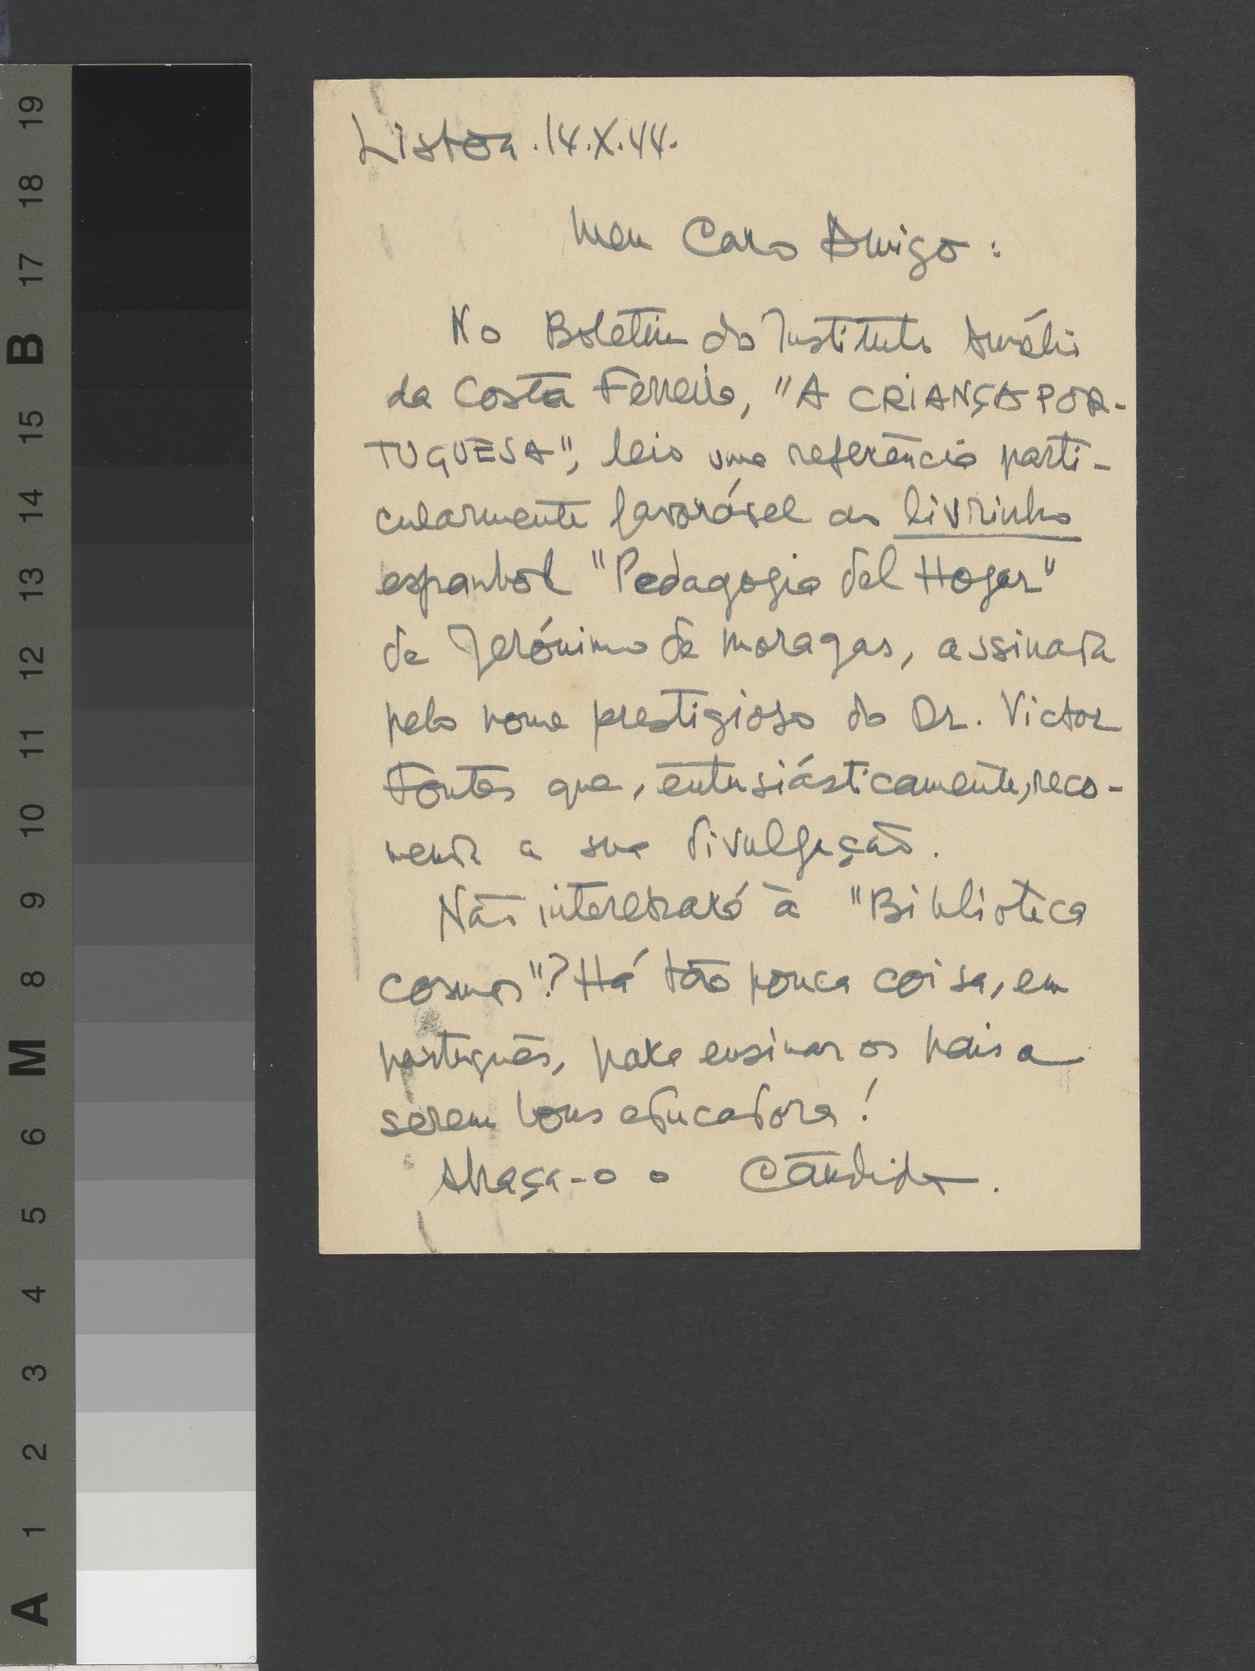 Lisboa. 14.X.44.
Meu Caro Amigo:
No Boletim do Instituto Aurélio
da Costa Ferreira, "A CRIANÇA POR-
TUGUESA", leio uma referência parti-
cularmente favorável ao livrinho
espanhol "Pedagogia del Hogar"
de Jerónimo de Moragas, assinada
pelo nome prestigioso do Dr. Victor
Fontes que, entusiásticamente, reco-
menda a sua divulgação.
Não interessará à "Biblioteca
Cosmos"? Há tão pouca coisa, em
português, para ensinar os pais a
serem bons educadores!
Abraça-o o Cândido.
19
18
17
B
15
14
13
12
11
10
9
8
M
6
5
4
3
2
1
A